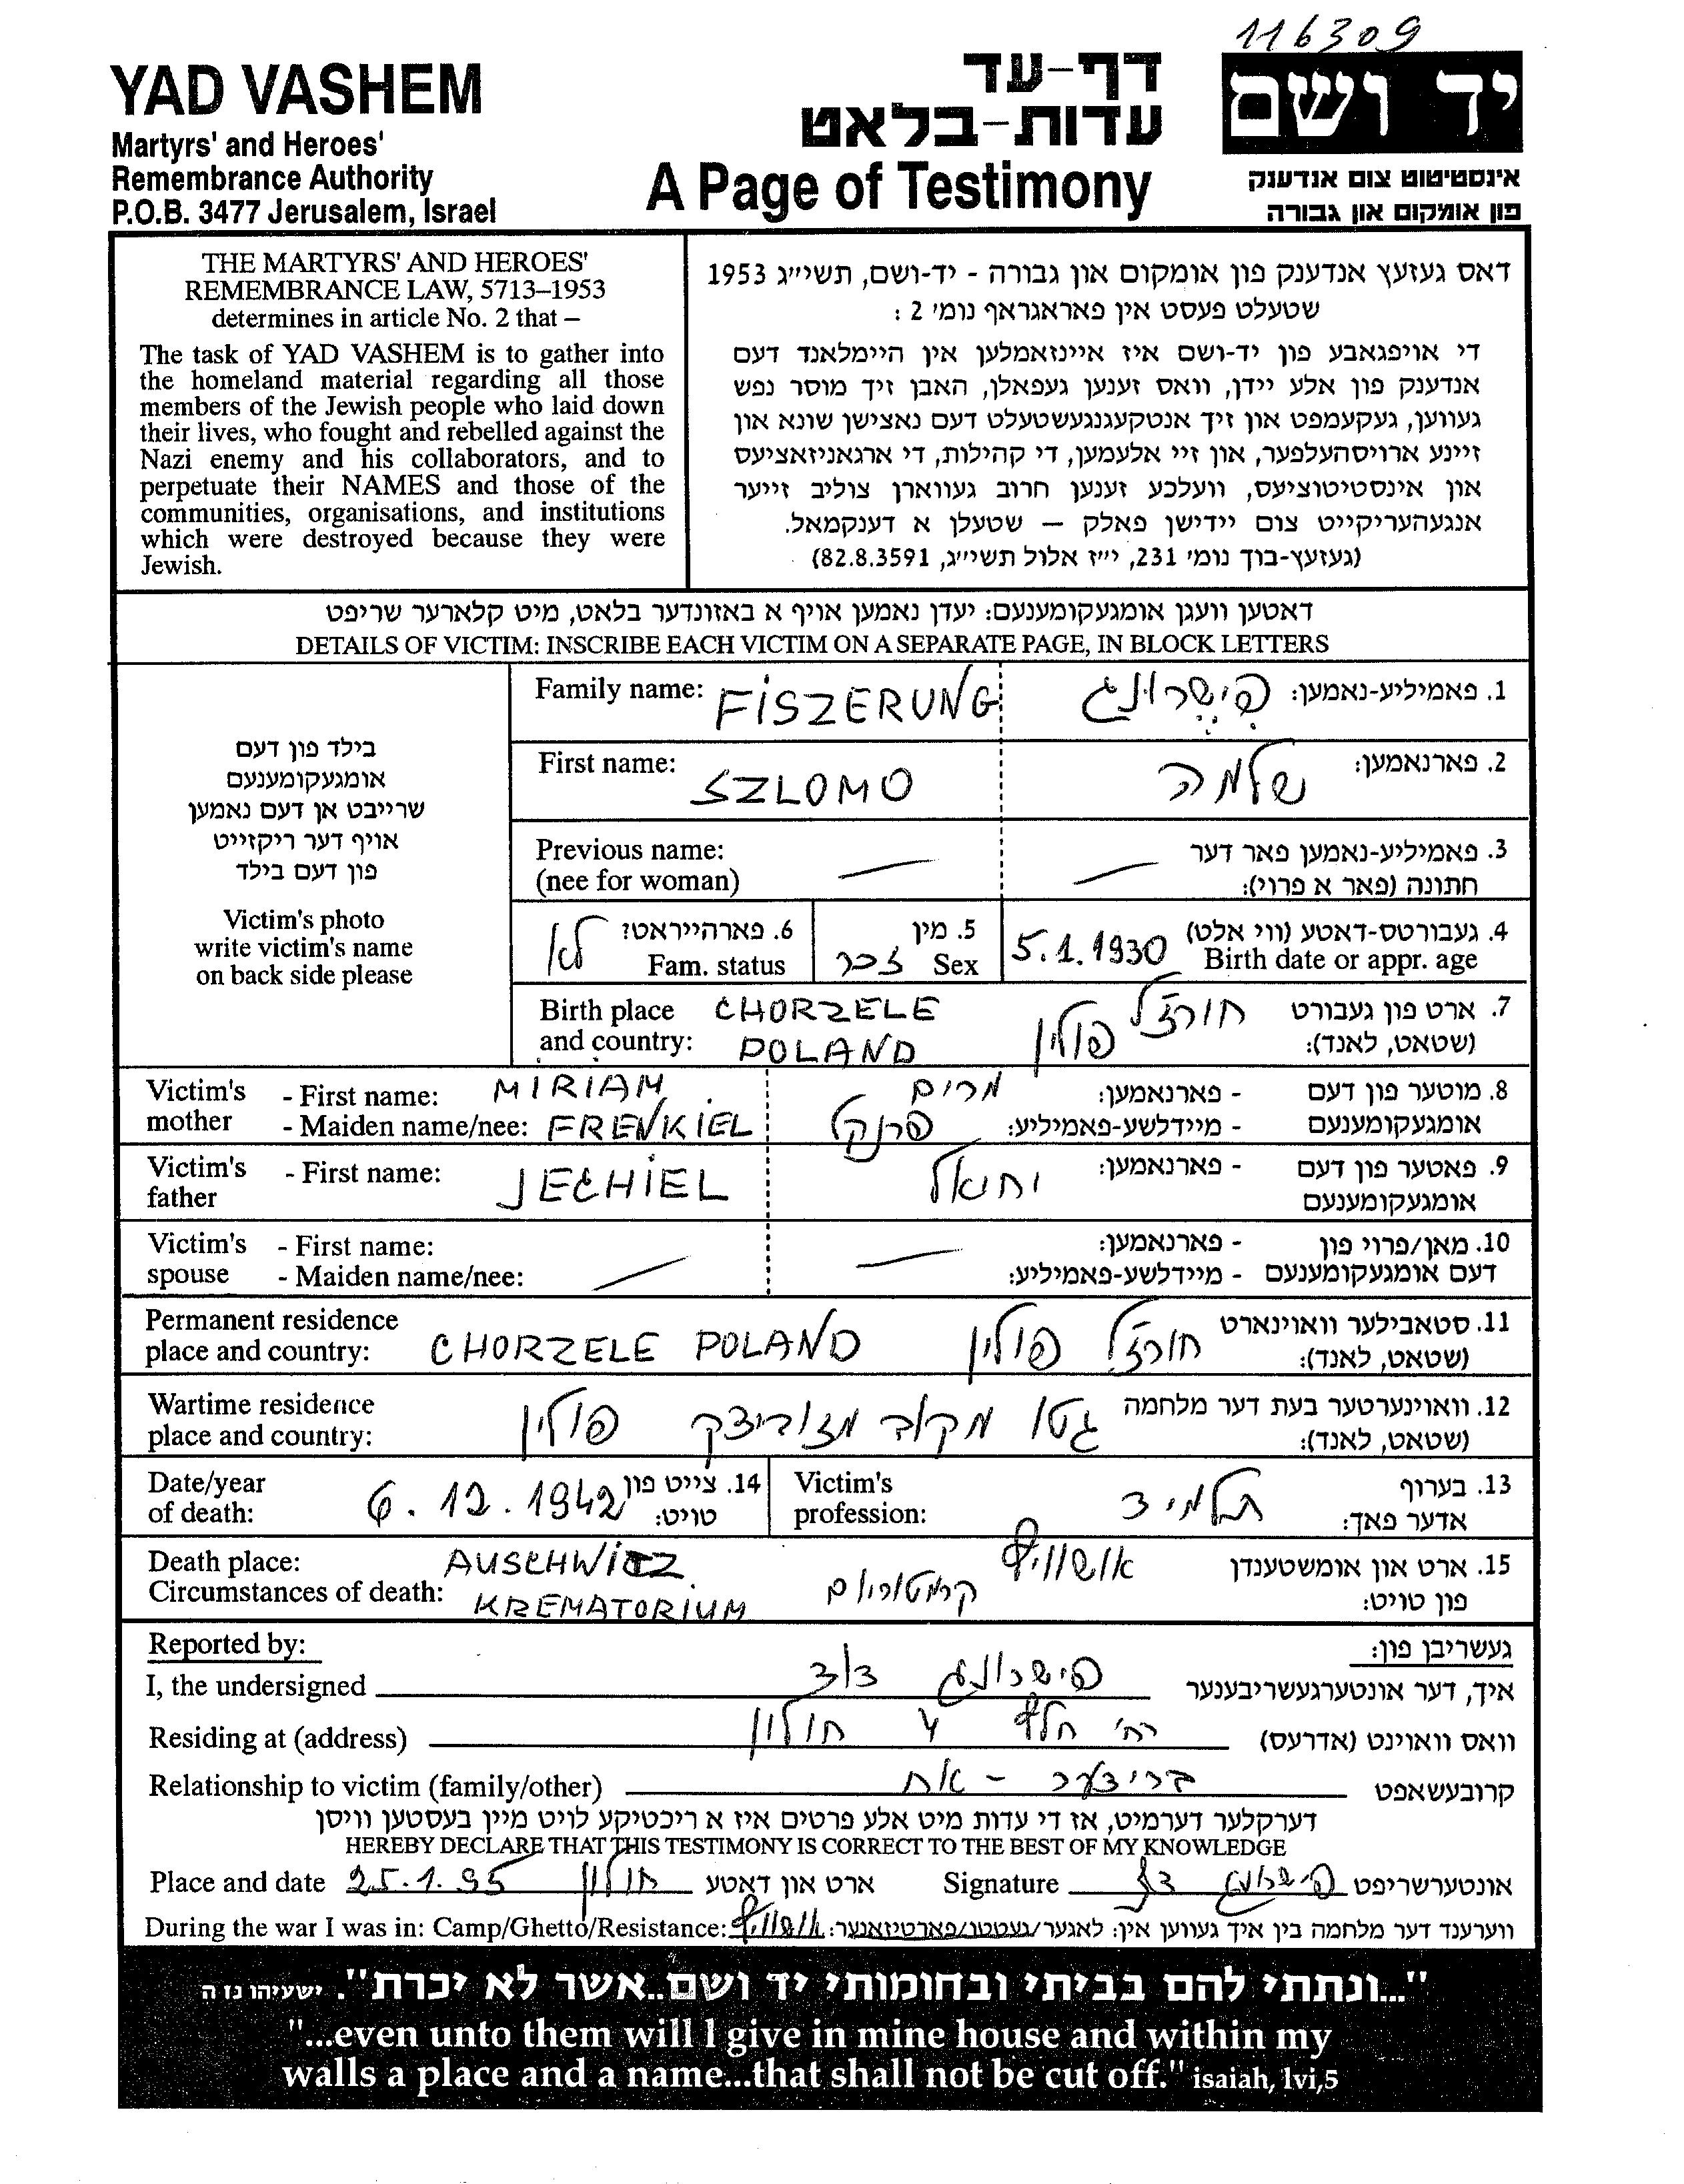 116309
YAD VASHEM
Martyrs' and Heroes'
Remembrance Authority
P.O.B. 3477 Jerusalem, Israel
דף-עד
עדות-בלאט
A Page of Testimony
יד ושם
אינסטיטוט צום אנדענק
פון אומקום און גבורה
THE MARTYRS' AND HEROES'
REMEMBRANCE LAW, 5713–1953
determines in article No. 2 that –
The task of YAD VASHEM is to gather into
the homeland material regarding all those
members of the Jewish people who laid down
their lives, who fought and rebelled against the
Nazi enemy and his collaborators, and to
perpetuate their NAMES and those of the
communities, organisations, and institutions
which were destroyed because they were
Jewish.
דאס געזעץ אנדענק פון אומקום און גבורה - יד-ושם, תשי״ג 1953
שטעלט פעסט אין פאראגראף נומ׳ 2 :
די אויפגאבע פון יד-ושם איז איינזאמלען אין היימלאנד דעם
אנדענק פון אלע יידן, וואס זענען געפאלן, האבן זיך מוסר נפש
געווען, געקעמפט און זיך אנטקעגנגעשטעלט דעם נאצישן שונא און
זיינע ארויסהעלפער, און זיי אלעמען, די קהילות, די ארגאניזאציעס
און אינסטיטוציעס, וועלכע זענען חרוב געווארן צוליב זייער
אנגעהעריקייט צום יידישן פאלק — שטעלן א דענקמאל.
(געזעץ-בוך נומ׳ 231, י״ז אלול תשי״ג, 82.8.3591)
דאטען וועגן אומגעקומענעם: יעדן נאמען אויף א באזונדער בלאט, מיט קלארער שריפט
DETAILS OF VICTIM: INSCRIBE EACH VICTIM ON A SEPARATE PAGE, IN BLOCK LETTERS
בילד פון דעם
אומגעקומענעם
שרייבט אן דעם נאמען
אויף דער ריקזייט
פון דעם בילד
Victim's photo
write victim's name
on back side please
Family name: FISZERUNG פישרונג 1. פאמיליע-נאמען:
First name: SZLOMO שלמה 2. פארנאמען:
Previous name: 3. פאמיליע-נאמען פאר דער
(nee for woman) חתונה (פאר א פרוי):
לא 6. פארהייראטט? זכר 5. מין 5.1.1930 4. געבורטס-דאטע (ווי אלט)
Fam. status Sex Birth date or appr. age
Birth place CHORZELE חורז'ל 7. ארט פון געבורט
and country: POLAND פולין (שטאט, לאנד):
Victim's - First name: MIRIAM מרים - פארנאמען: 8. מוטער פון דעם
mother - Maiden name/nee: FRENKIEL פרנקל - מיידלשע-פאמיליע: אומגעקומענעם
Victim's - First name: JECHIEL יחיאל - פארנאמען: 9. פאטער פון דעם
father אומגעקומענעם
Victim's - First name: - פארנאמען: 10. מאן/פרוי פון
spouse - Maiden name/nee: - מיידלשע-פאמיליע: דעם אומגעקומענעם
Permanent residence 11. סטאבילער וואוינארט
place and country: CHORZELE POLAND חורז'ל פולין (שטאט, לאנד):
Wartime residence 12. וואוינערטער בעת דער מלחמה
place and country: גטו מקוב מזוביצק פולין (שטאט, לאנד):
Date/year 6.12.1942 14. צייט פון Victim's תלמיד 13. בערוף
of death: טויט: profession: אדער פאך:
Death place: AUSCHWITZ אושוויץ 15. ארט און אומשטענדן
Circumstances of death: KREMATORIUM קרמטוריום פון טויט:
Reported by: געשריבן פון:
I, the undersigned פישרונג דוד איך, דער אונטערגעשריבענער
Residing at (address) רח' חלץ 4 חולון וואס וואוינט (אדרעס)
Relationship to victim (family/other) ברידער - אח קרובעשאפט
דערקלער דערמיט, אז די עדות מיט אלע פרטים איז א ריכטיקע לויט מיין בעסטען וויסן
HEREBY DECLARE THAT THIS TESTIMONY IS CORRECT TO THE BEST OF MY KNOWLEDGE
Place and date 25.1.95 חולון ארט און דאטע Signature פישרונג דוד אונטערשריפט
During the war I was in: Camp/Ghetto/Resistance: אושוויץ ווערענד דער מלחמה בין איך געווען אין: לאגער/געטטו/פארטיזאנער:
"...ונתתי להם בביתי ובחומותי יד ושם..אשר לא יכרת". ישעיהו נז ה
"...even unto them will I give in mine house and within my
walls a place and a name...that shall not be cut off." isaiah, lvi,5